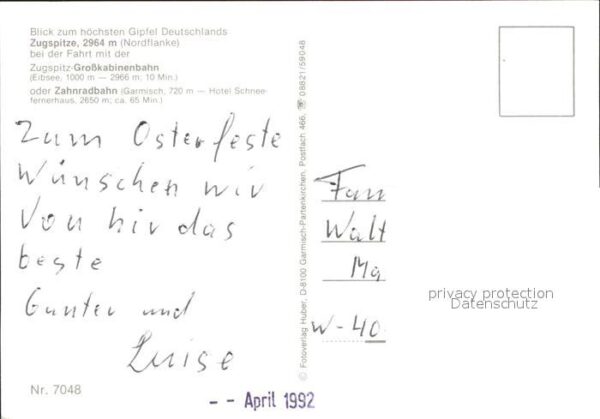 Blick zum höchsten Gipfel Deutschlands
Zugspitze, 2964 m (Nordflanke)
bei der Fahrt mit der
Zugspitz-Großkabinenbahn
(Eibsee, 1000 m — 2966 m; 10 Min.)
oder Zahnradbahn (Garmisch, 720 m — Hotel Schnee-
fernerhaus, 2650 m; ca. 65 Min.)
Zum Osterfeste
Wünschen wir
Von hir das
beste
Gunter und
Luise
Nr. 7048
-- April 1992
© Fotoverlag Huber, D-8100 Garmisch-Partenkirchen, Postfach 466, ☏ 08821/59048
Fam
Walt
Ma
W-40
privacy protection
Datenschutz